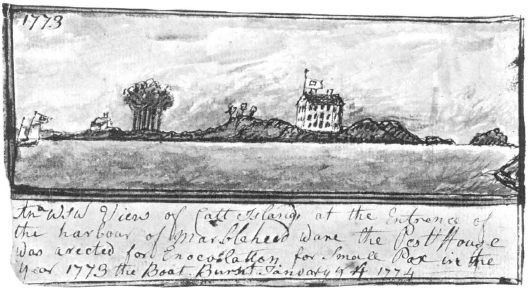 1773
An WSW View of Catt Island at the Entrence of
the harbour of Marblehead ware the Pest House
was arected for Enocolation for Small Pox in the
year 1773 the Boat Burnt January 1774